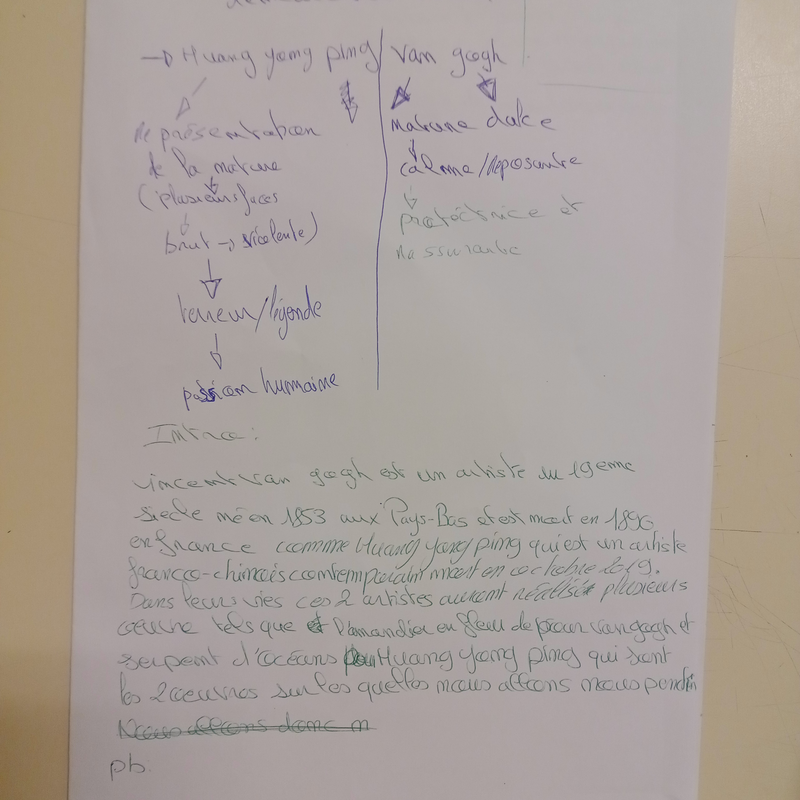 → Huang yong ping
Représentation
de la nature
(plusieurs faces
brut → violente)
terreur/légende
passion humaine
Van gogh
nature dulce
calme/reposante
protectrice et
rassurante
Intro:
Vincent Van gogh est un artiste du 19eme
siecle né en 1853 aux Pays-Bas et est mort en 1890
en france comme Huang yong ping qui est un artiste
franco-chinois contemporain mort en octobre 2019.
Dans leurs vies ces 2 artistes auront réalisé plusieurs
œuvre tels que l'amandier en fleur de pour van gogh et
serpent d'océans pour Huang yong ping qui sont
les 2 œuvres sur les quelles nous allons nous
Nous allons donc n
pb.